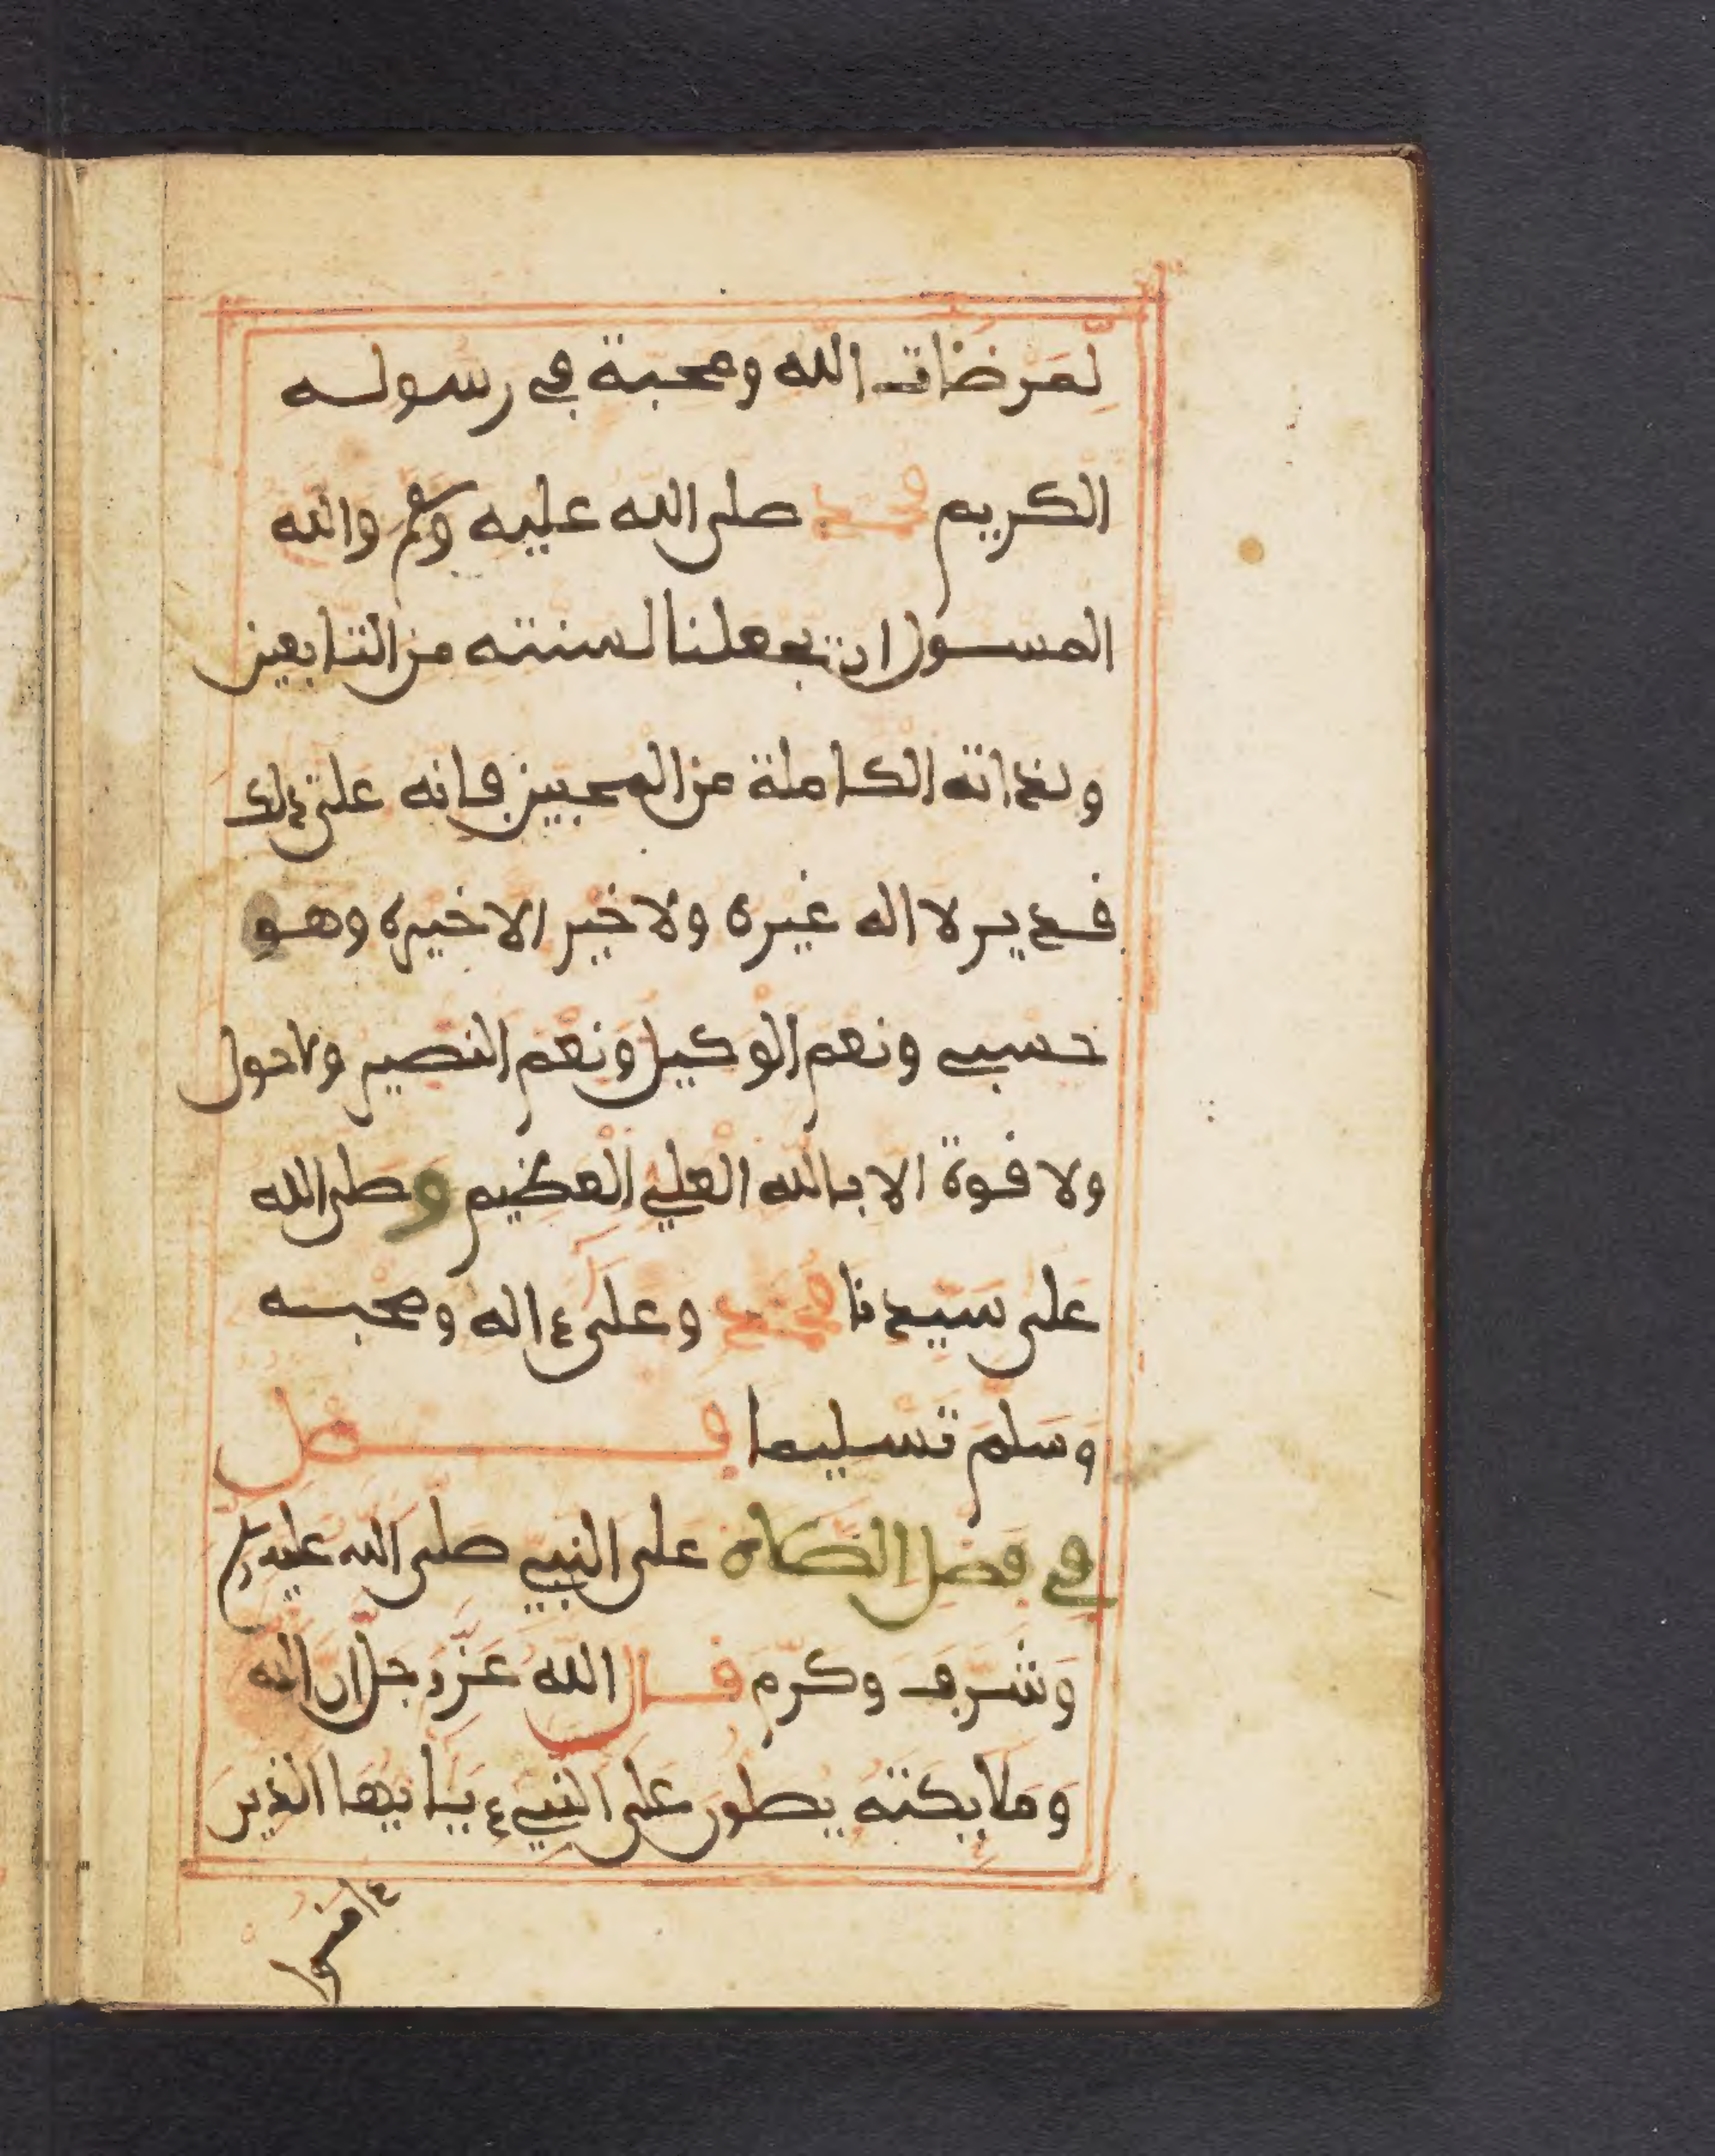 لمرضات الله ومحبة في رسوله
الكريم محمد صلى الله عليه وسلم والله
المسول ان يجعلنا لسنته من التابعين
ولذاته الكاملة من المحبين فانه على ذلك
قدير لا اله غيره ولا خير الا خيره وهو
حسبي ونعم الوكيل ونعم النصير ولا حول
ولا قوة الا بالله العلي العظيم وصلى الله
على سيدنا محمد وعلى ءاله وصحبه
وسلم تسليما فصل
في فضل الصلاة على النبي صلى الله عليه وسلم
وشرف وكرم قال الله عز وجل ان الله
وملايكته يصلون على النبيء يايها الذين
ءامنوا